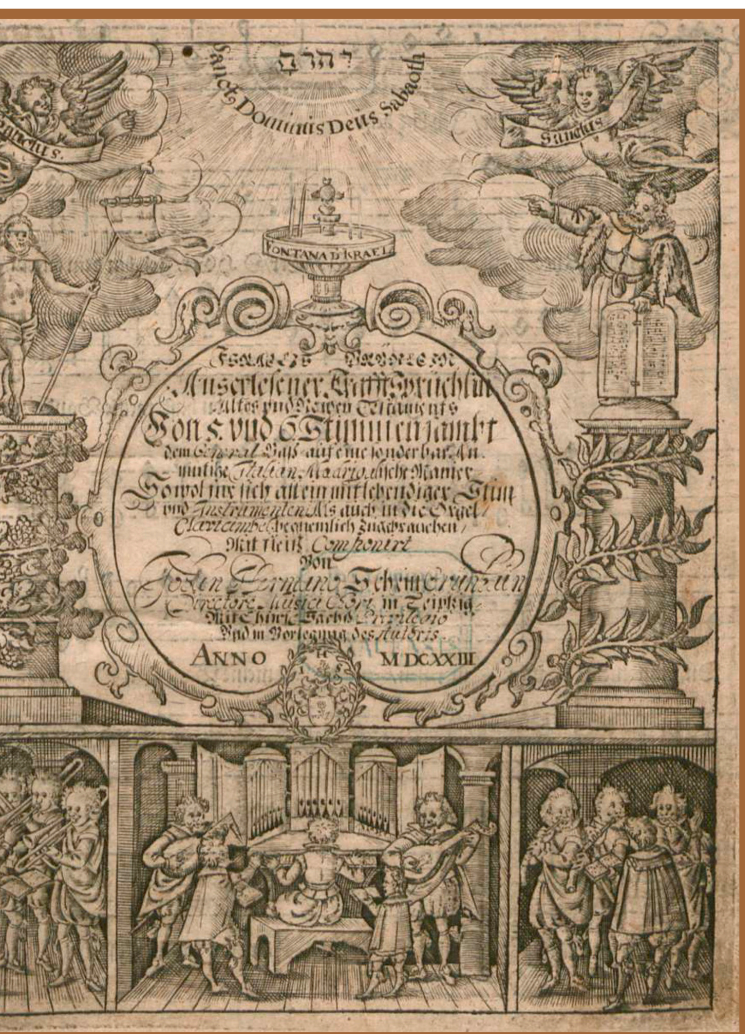 יהוה
Sanct, Dominus Deus Sabaoth
Sanctus.
Sanctus
FONTANA D'ISRAEL
ISRAELIS BRÜNLEIN
Auserlesener Krafft Sprüchlin
Altes vnd Newen Testaments
Von 5. vnd 6. Stimmen sambt
dem General Baß auf eine sonderbar An-
mutige Italian Madrigalische Manier
So wol für sich allein mit lebendiger Stim
vnd Instrumenten Als auch in die Orgel
Clavicimbel bequemlich zugebrauchen
Mit fleiß Componirt
Von
Johan Hermano Schein Grünhain
Directore Musici Chori in Leipzig
Mit Churf. Saechs. Privilegio
Vnd in Vorlegung des Autoris.
ANNO M DCXXIII